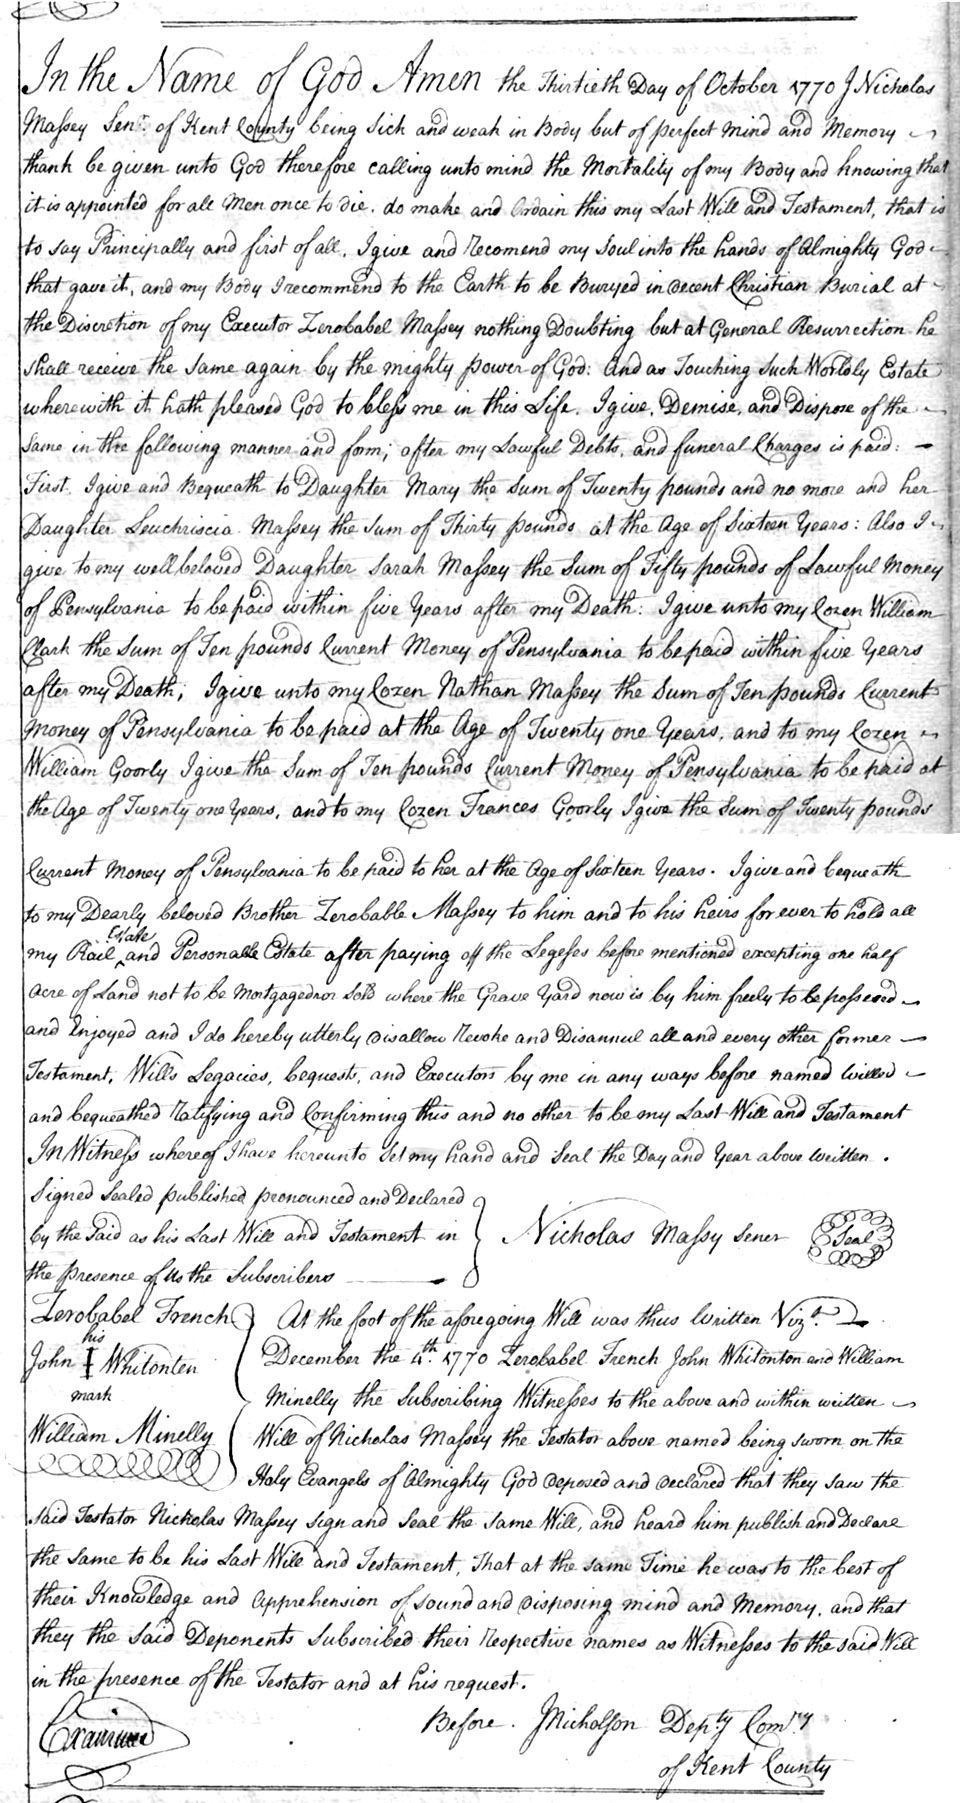 In the Name of God Amen the Thirtieth Day of October 1770 I Nicholas
Massey Senr. of Kent County being Sick and weak in Body but of perfect Mind and Memory
thank be given unto God therefore calling unto mind the Mortality of my Body and knowing that
it is appointed for all Men once to die. do make and Ordain this my Last Will and Testament, that is
to say Principally and first of all, I give and Recomend my Soul into the hands of Almighty God
that gave it, and my Body I recommend to the Earth to be Buryed in decent Christian Burial at
the Discretion of my Executor Zerobabel Massey nothing Doubting but at General Resurrection he
shall receive the same again by the mighty power of God: And as Touching Such Worldly Estate
wherewith it hath pleased God to bless me in this Life. I give, Demise, and Dispose of the
same in the following manner and form; after my Lawful Debts, and funeral Charges is paid:
First. I give and Bequeath to Daughter Mary the Sum of Twenty pounds and no more and her
Daughter Leuchriscia Massey the Sum of Thirty pounds at the Age of Sixteen Years: Also I
give to my well beloved Daughter Sarah Massey the Sum of Fifty pounds of Lawful Money
of Pensylvania to be paid within five Years after my Death: I give unto my Cozen William
Clark the Sum of Ten pounds Current Money of Pensylvania to be paid within five Years
after my Death; I give unto my Cozen Nathan Massey the Sum of Ten pounds Current
Money of Pensylvania to be paid at the Age of Twenty one Years, and to my Cozen
William Goorly I give the Sum of Ten pounds Current Money of Pensylvania to be paid at
the Age of Twenty one Years, and to my Cozen Frances Goorly I give the Sum of Twenty pounds
Current Money of Pensylvania to be paid to her at the Age of Sixteen Years. I give and bequeath
to my Dearly beloved Brother Zerobable Massey to him and to his heirs for ever to hold all
my Rail Estate and Personable Estate after paying off the Legeses before mentioned excepting one half
Acre of Land not to be Mortgaged nor Sold where the Grave Yard now is by him freely to be possesed
and Enjoyed and I do hereby utterly disallow Revoke and Disannul all and every other former
Testament, Wills Legacies, bequests, and Executors by me in any ways before named willed
and bequeathed Ratifying and Confirming this and no other to be my Last Will and Testament
In Witness whereof I have hereunto Set my hand and Seal the Day and Year above written.
Signed Sealed published pronounced and Declared
by the Said as his Last Will and Testament in
the presence of Us the Subscribers
Nicholas Massy Sener Seal
Zerobabel French
his
John I Whitonten
mark
William Minelly
At the foot of the aforegoing Will was thus written Vizt.
December the 4th. 1770 Zerobabel French John Whitonton and William
Minelly the Subscribing Witnesses to the above and within written
Will of Nicholas Massey the Testator above named being sworn on the
Holy Evangels of Almighty God deposed and declared that they saw the
said Testator Nickolas Massey sign and Seal the same Will, and heard him publish and Declare
the same to be his Last Will and Testament, That at the same Time he was to the best of
their Knowledge and Apprehension of sound and disposing mind and Memory, and that
they the said Deponents Subscribed their Respective names as Witnesses to the said Will
in the presence of the Testator and at his request.
Examined
Before. J Nicholson Depty Comry
of Kent County